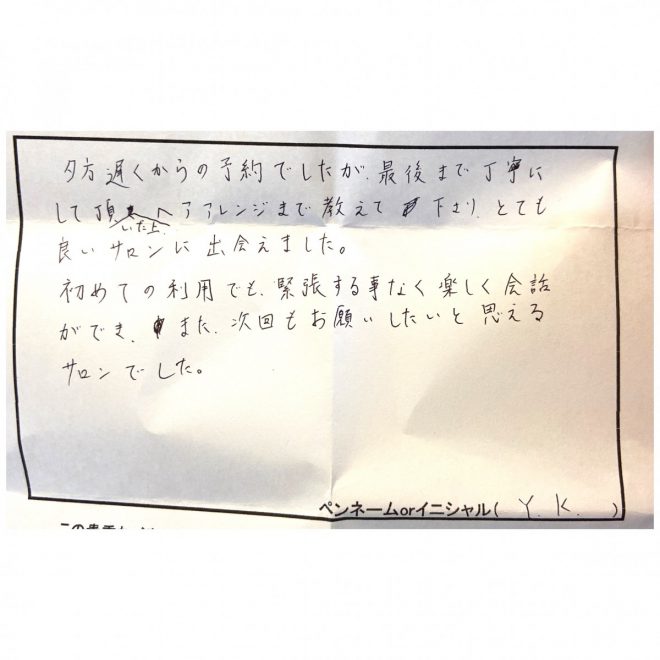 夕方遅くからの予約でしたが、最後まで丁寧に
して頂いた上、ヘアアレンジまで教えて下さり、とても
良いサロンに出会えました。
初めての利用でも、緊張する事なく楽しく会話
ができ、また、次回もお願いしたいと思える
サロンでした。
ペンネームorイニシャル( Y. K. )